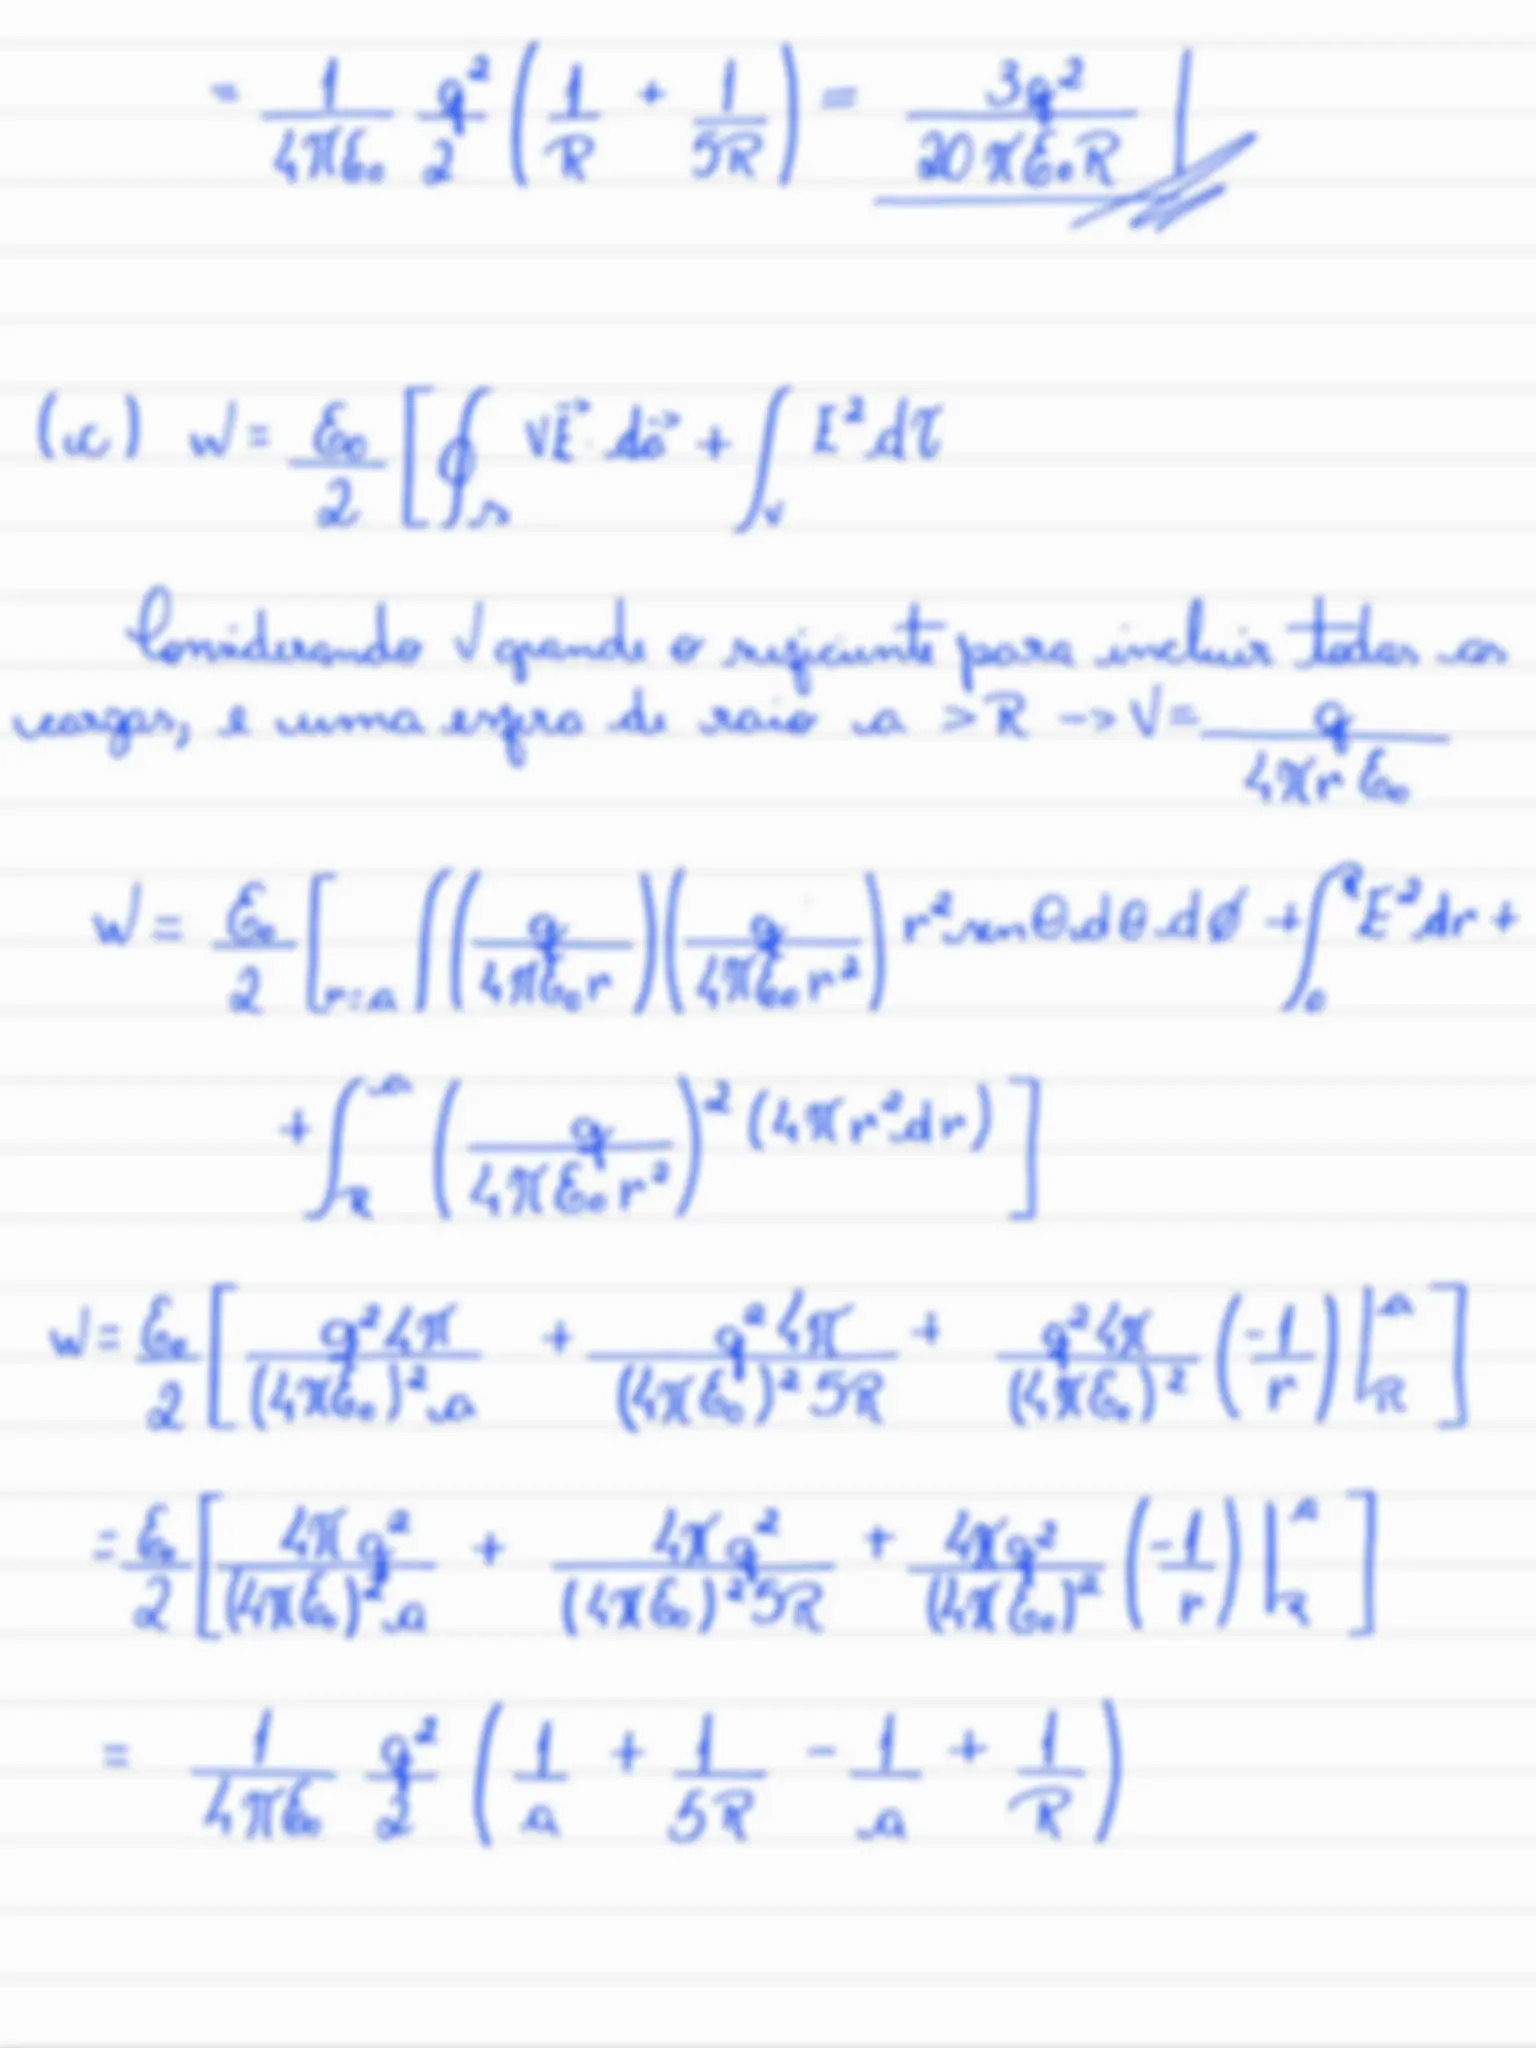 = 1/4πε₀ q²/2 (1/R + 1/5R) = 3q²/20πε₀R
(c) W = ε₀/2 [∮ₛ VE⃗ da⃗ + ∫ᵥ E² dτ
Considerando V grande o suficiente para incluir todas as
cargas, e uma esfera de raio a > R -> V = q/4πrε₀
W = ε₀/2 [r=a ∫(q/4πε₀r)(q/4πε₀r²) r² senθ dθ dφ + ∫₀ᴿ E² dr +
+ ∫_R^a (q/4πε₀r²)² (4πr² dr)]
W = ε₀/2 [q²4π/(4πε₀)²a + q²4π/(4πε₀)²5R + q²4π/(4πε₀)² (-1/r)|_R^a]
= ε₀/2 [4πq²/(4πε₀)²a + 4πq²/(4πε₀)²5R + 4πq²/(4πε₀)² (-1/r)|_R^a]
= 1/4πε₀ q²/2 (1/a + 1/5R - 1/a + 1/R)